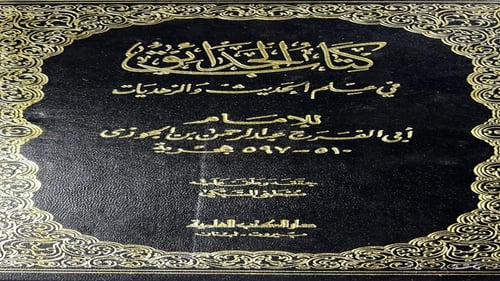 كتاب الحدائق
في علم الحديث والزهديات
للإمام
أبي الفرج عبد الرحمن بن الجوزي
٥١٠ - ٥٩٧ هجرية
حققه وعلق عليه
مصطفى السبكي
دار الكتب العلمية
بيروت - لبنان